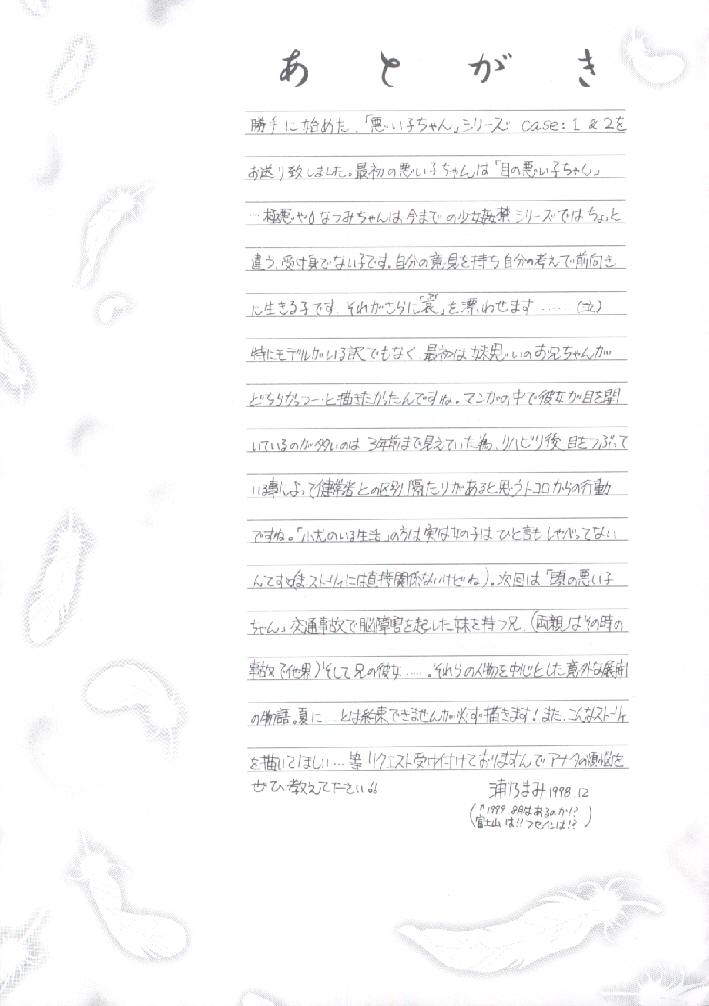 あとがき
勝手に始めた、「悪い子ちゃん」シリーズ case:1&2を
お送り致しました。最初の悪い子ちゃんは「目の悪い子ちゃん」
なつみちゃんは今までの少女姦禁シリーズではちょっと
違う、受け身でない子です。自分の意見を持ち自分の考えで前向き
に生きる子です。それがさらに「哀」を漂わせます……(泣)
特にモデルがいる訳でもなく、最初は妹思いのお兄ちゃんが
どちらかっつーと描きたかったんですね。マンガの中で彼女が目を開
いているのが多いのは3年前まで見えていた為、リハビリ後、目をつぶって
いる事によって健常者との区別、隔たりがあると思うトコロからの行動
ですね。「小犬のいる生活」の方は実は女の子はひと言もしゃべってない
んですね(まぁストーリィには直接関係ないけどね)。次回は「頭の悪い子
ちゃん」交通事故で脳障害を起した妹を持つ兄、(両親はその時の
事故で他界)そして兄の彼女……。それらの人物を中心とした意外な展開
の物語。夏に…とは約束できませんが必ず描きます!また、こんなストーリィ
を描いてほしい…等リクエスト受け付けておりますんでアナタの煩悩を
ぜひ教えてください。
浦乃まみ 1998.12
(↑1999 8月はあるのか!?
富士山は!! フセインは!?)